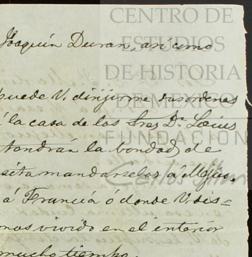 CENTRO DE
ESTUDIOS
DE HISTORIA
DE MÉXICO
FUNDACIÓN
Carlos Slim
Joaquín Duran, asi como
puede V. dirijirme sus ordenes
á la casa de los Sres Dn Louis
tendrán la bondad de
mandarselas á Méjico
á Francia ó donde V. dis=
mos vivido en el interior
mucho tiempo.